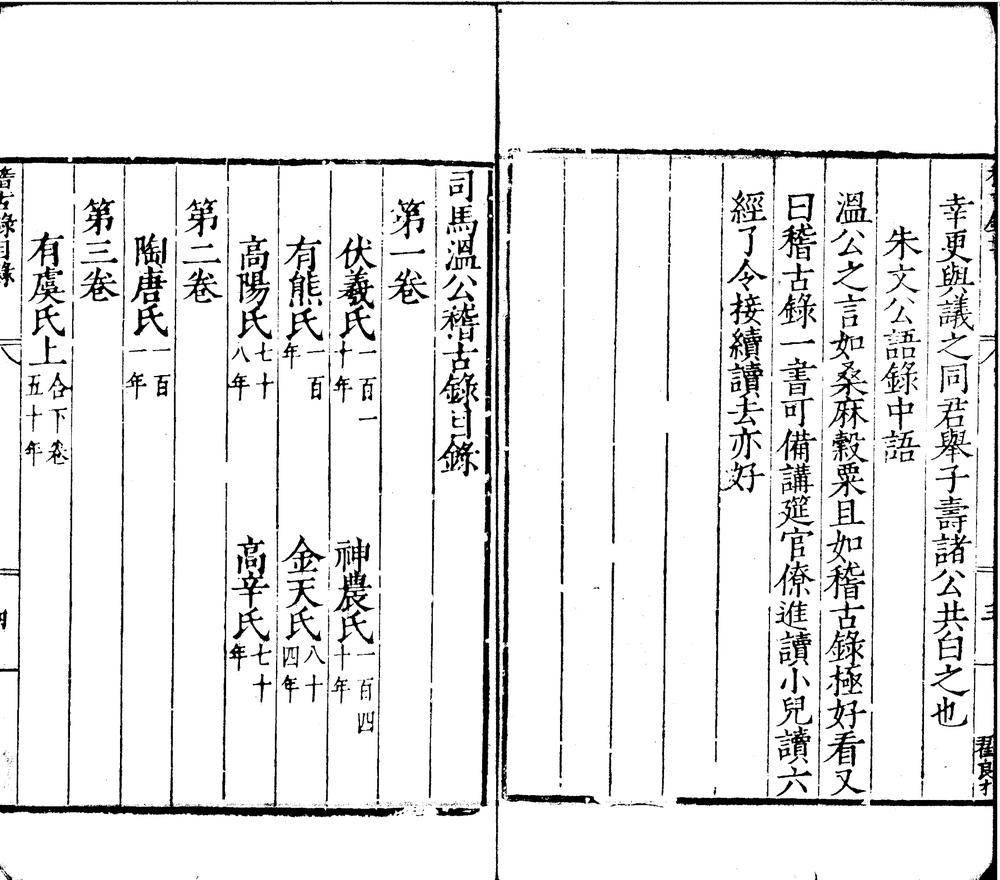 幸更與議之同君舉子壽諸公共白之也
朱文公語錄中語
溫公之言如桑麻穀粟且如稽古錄極好看又
曰稽古錄一書可備講筵官僚進讀小兒讀六
經了令接續讀去亦好
司馬溫公稽古錄目錄
第一卷
伏羲氏一百一十年 神農氏一百四十年
有熊氏一百年 金天氏八十四年
高陽氏七十八年 高辛氏七十年
第二卷
陶唐氏一百一年
第三卷
有虞氏上合下卷五十年
稽古錄目錄